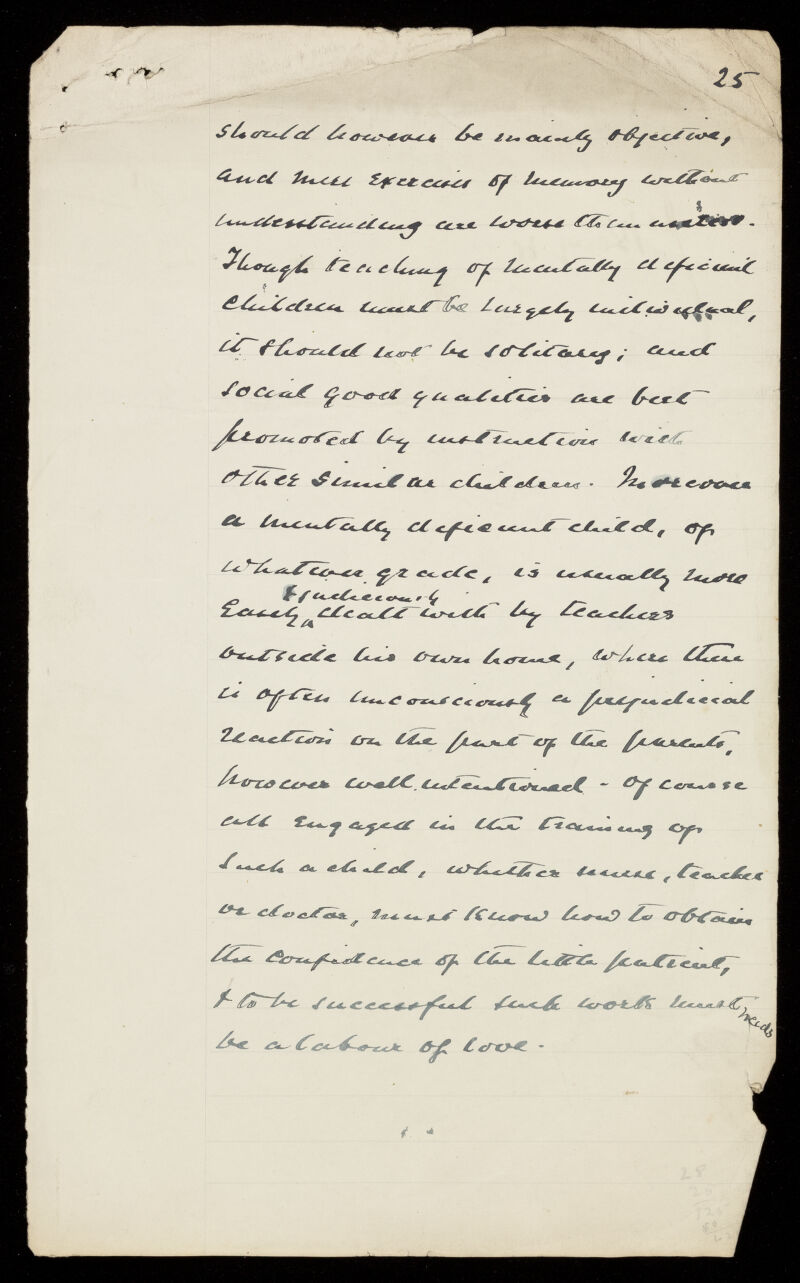 25
should however be mainly objective,
and mere exercises of memory without
understanding are worse than useless.
Though teaching of mentally deficient
children must be largely individual,
it should not be solitary; and
social good qualities are best
promoted by instruction with
other similar children. Moreover
a mentally deficient child, of
whatever grade, is usually more
& judiciously
easily dealt with by teachers
outside his own home, where there
is often unconsciously a prejudicial
reaction on the part of the parents,
however well intentioned - Of course
all engaged in the training of
such a child, whether nurse, teacher
or doctor, must know how to obtain
the confidence of the little patient,
& to be successful such work must needs
be a labour of love.
28